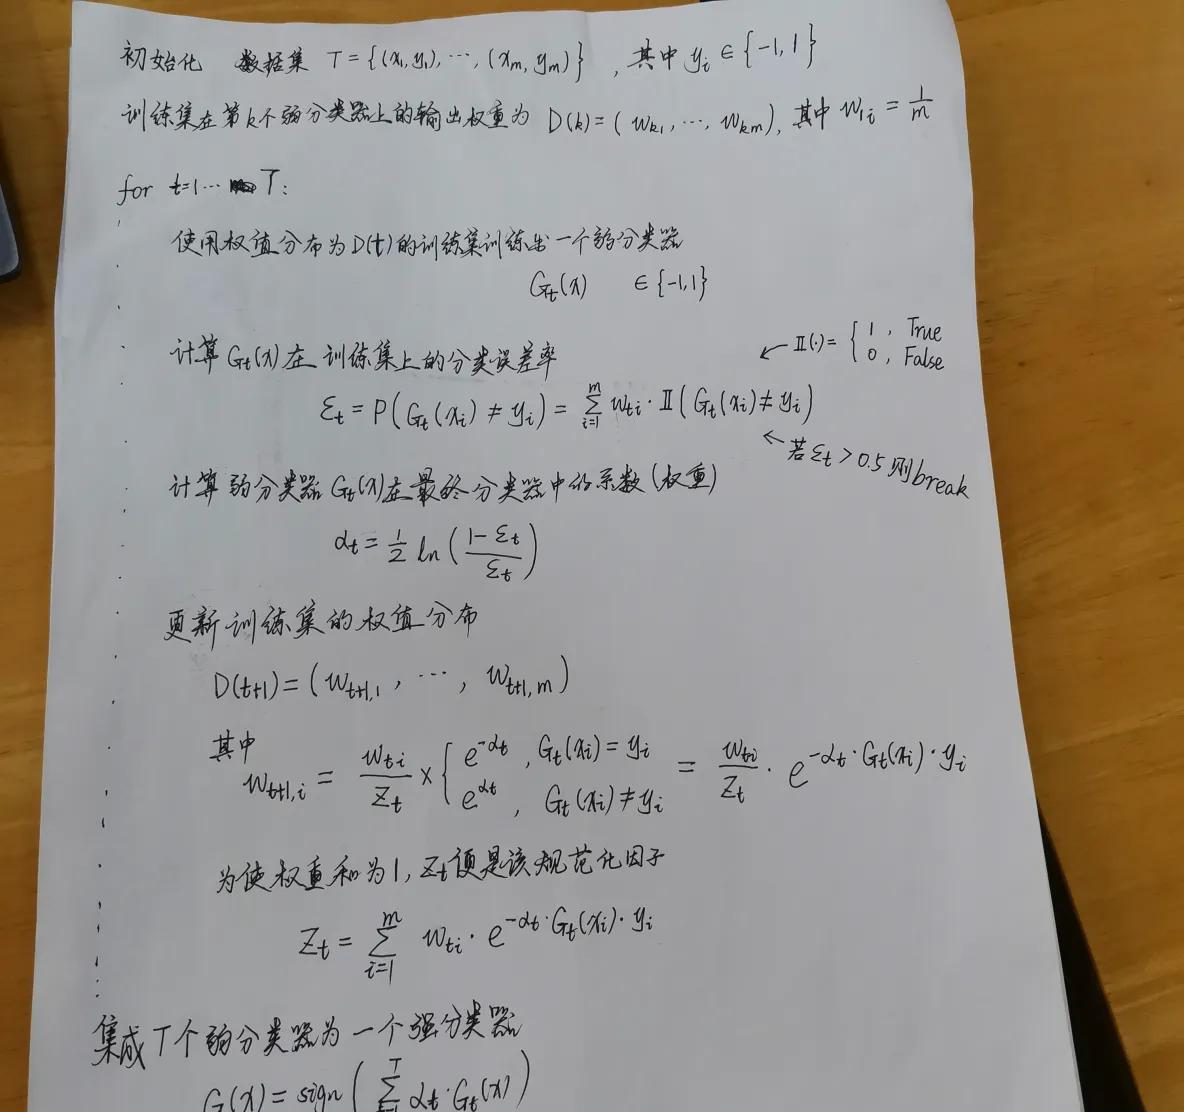 初始化 数据集 T = {(x₁,y₁),⋯,(xₘ,yₘ)} , 其中 yᵢ ∈ {-1,1}
训练集在第k个弱分类器上的输出权重为 D(k) = (w_{k1},⋯,w_{km}), 其中 w_{1i} = 1/m
for t=1⋯ T:
使用权值分布为D(t)的训练集训练出一个弱分类器
G_t(x) ∈{-1,1}
计算G_t(x)在训练集上的分类误差率
← 𝕀(·) = { 1, True
0, False
ε_t = P(G_t(xᵢ) ≠ yᵢ) = ∑_{i=1}^{m} w_{ti} · 𝕀(G_t(xᵢ) ≠ yᵢ)
← 若ε_t > 0.5 则break
计算弱分类器G_t(x)在最终分类器中的系数(权重)
α_t = 1/2 ln((1-ε_t)/ε_t)
更新训练集的权值分布
D(t+1) = (w_{t+1,1}, ⋯, w_{t+1,m})
其中
w_{t+1,i} = w_{ti}/Z_t × { e^{-α_t}, G_t(xᵢ) = yᵢ
e^{α_t}, G_t(xᵢ) ≠ yᵢ = w_{ti}/Z_t · e^{-α_t·G_t(xᵢ)·yᵢ}
为使权重和为1, Z_t便是该规范化因子
Z_t = ∑_{i=1}^{m} w_{ti} · e^{-α_t·G_t(xᵢ)·yᵢ}
集成T个弱分类器为一个强分类器
G(x) = sign(∑_{t=1}^{T} α_t·G_t(x))